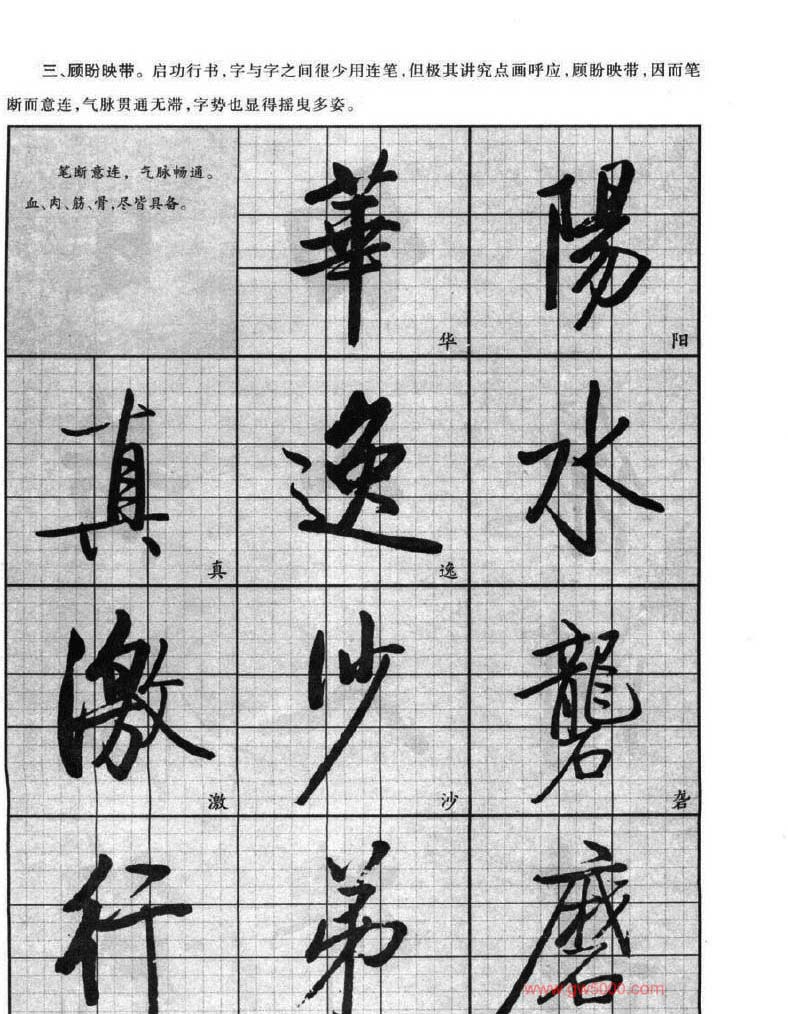 三、顾盼映带。启功行书,字与字之间很少用连笔,但极其讲究点画呼应,顾盼映带,因而笔
断而意连,气脉贯通无滞,字势也显得摇曳多姿。
笔断意连,气脉畅通。
血、肉、筋、骨,尽皆具备。
華 陽
华 阳
真 逸 水
真 逸
激 沙 礱
激 沙 砻
行 弟 磨
www.gw5000.com